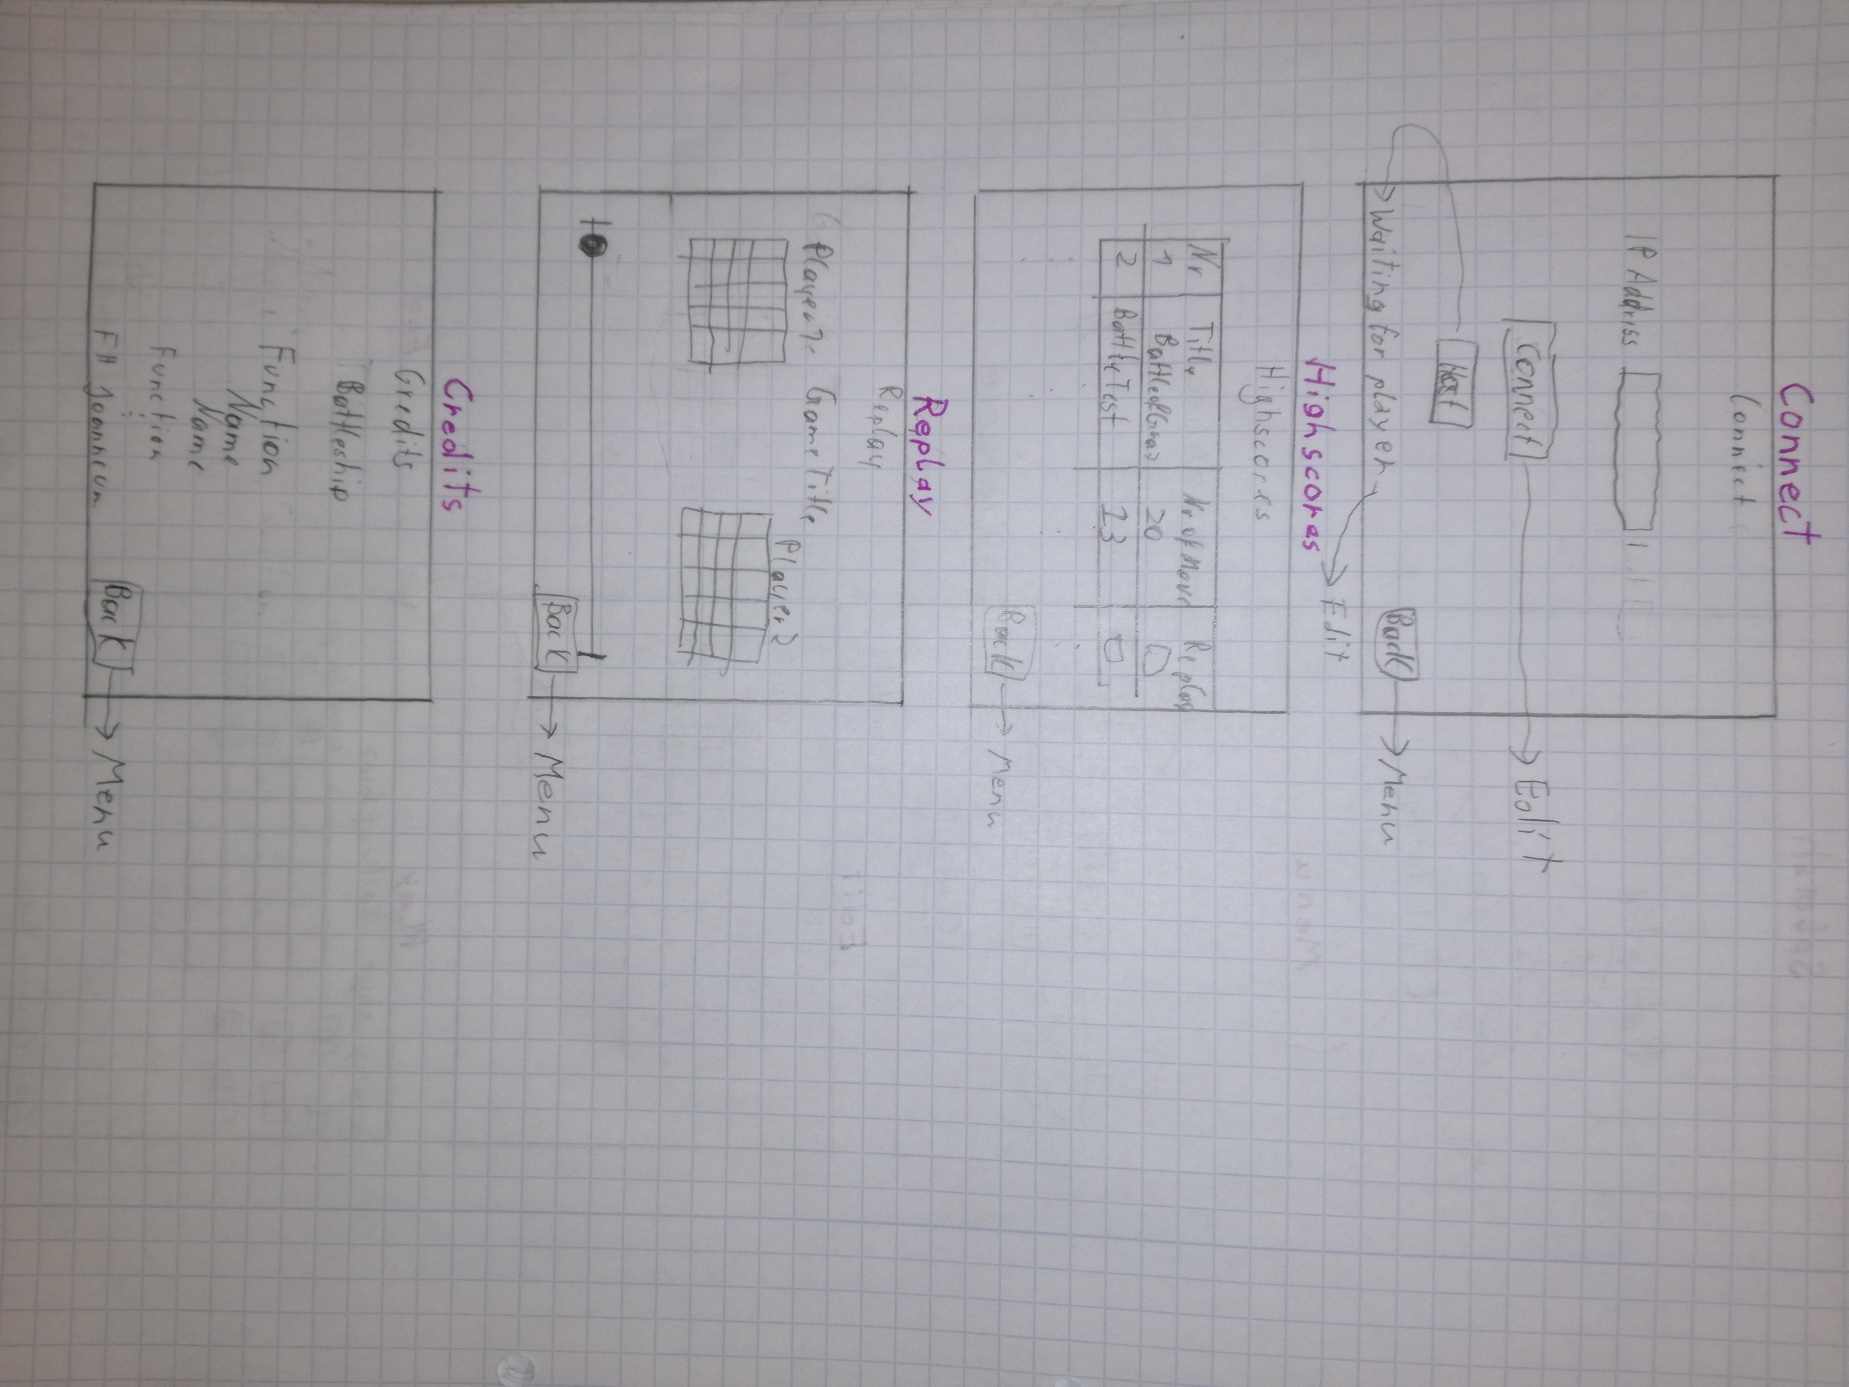 Connect
Connect
IP Address
Connect
Host
Waiting for player
Back
Menu
Edit
Edit
Highscores
Highscores
Nr Title Nr of Move Replay
1 BattleofGraz 20
2 BattleTest 23
Back
Menu
Replay
Replay
Player1 GameTitle
Player2
Back
Menu
Credits
Credits
Battleship
Function
Name
Name
Function
FH Joanneum
Back
Menu